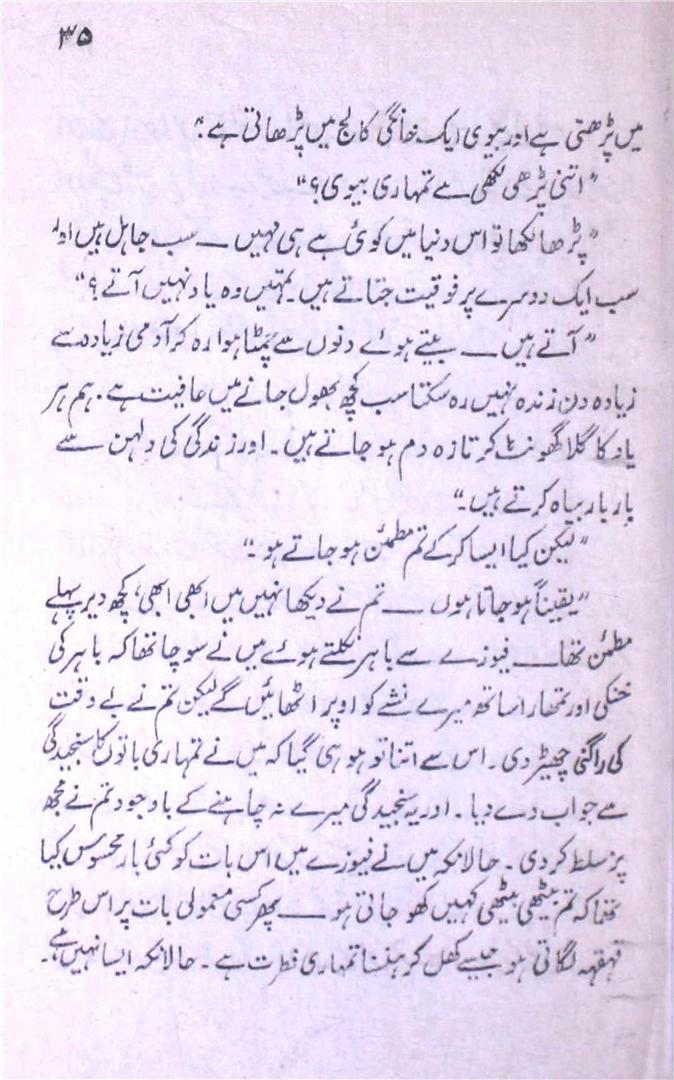 ۳۵
میں پڑھتی ہے اور بیوی ایک خانگی کالج میں پڑھاتی ہے۔"
"اتنی پڑھی لکھی ہے تمہاری بیوی؟"
"پڑھا لکھا تو اس دنیا میں کوئی ہے ہی نہیں — سب جاہل ہیں اور
سب ایک دوسرے پر فوقیت جتاتے ہیں۔ تمہیں وہ یاد نہیں آتے؟"
"آتے ہیں — بیتے ہوئے دنوں سے چمٹا ہوا رہ کر آدمی زیادہ سے
زیادہ دن زندہ نہیں رہ سکتا سب کچھ بھول جانے میں عافیت ہے۔ ہم ہر
یاد کا گلا گھونٹ کر تازہ دم ہو جاتے ہیں۔ اور زندگی کی دلہن سے
بار بار بیاہ کرتے ہیں۔"
"لیکن کیا ایسا کرکے تم مطمئن ہو جاتے ہو۔"
"یقیناً ہو جاتا ہوں — تم نے دیکھا نہیں میں ابھی ابھی، کچھ دیر پہلے
مطمئن تھا — فیوزے سے باہر نکلتے ہوئے میں نے سوچا تھا کہ باہر کی
خنکی اور تمھارا ساتھ میرے نشے کو اوپر اٹھائیں گے لیکن تم نے بے وقت
کی راگنی چھیڑ دی۔ اس سے اتنا تو ہو ہی گیا کہ میں نے تمہاری باتوں کا سنجیدگی
سے جواب دے دیا۔ اور یہ سنجیدگی میرے نہ چاہنے کے باوجود تم نے مجھ
پر مسلط کر دی۔ حالانکہ میں نے فیوزے میں اس بات کو کئی بار محسوس کیا
تھا کہ تم بیٹھی بیٹھی کہیں کھو جاتی ہو — پھر کسی معمولی بات پر اس طرح
قہقہہ لگاتی ہو جیسے کھل کر ہنسنا تمہاری فطرت ہے۔ حالانکہ ایسا نہیں ہے۔